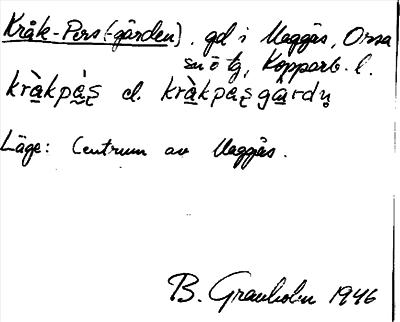 Kråk-Pers (-gården), gd i Maggås, Orsa
sn o tg, Kopparb. l.
kràkpàs el. kràkpasgardn
Läge: Centrum av Maggås.
B. Granholm 1946